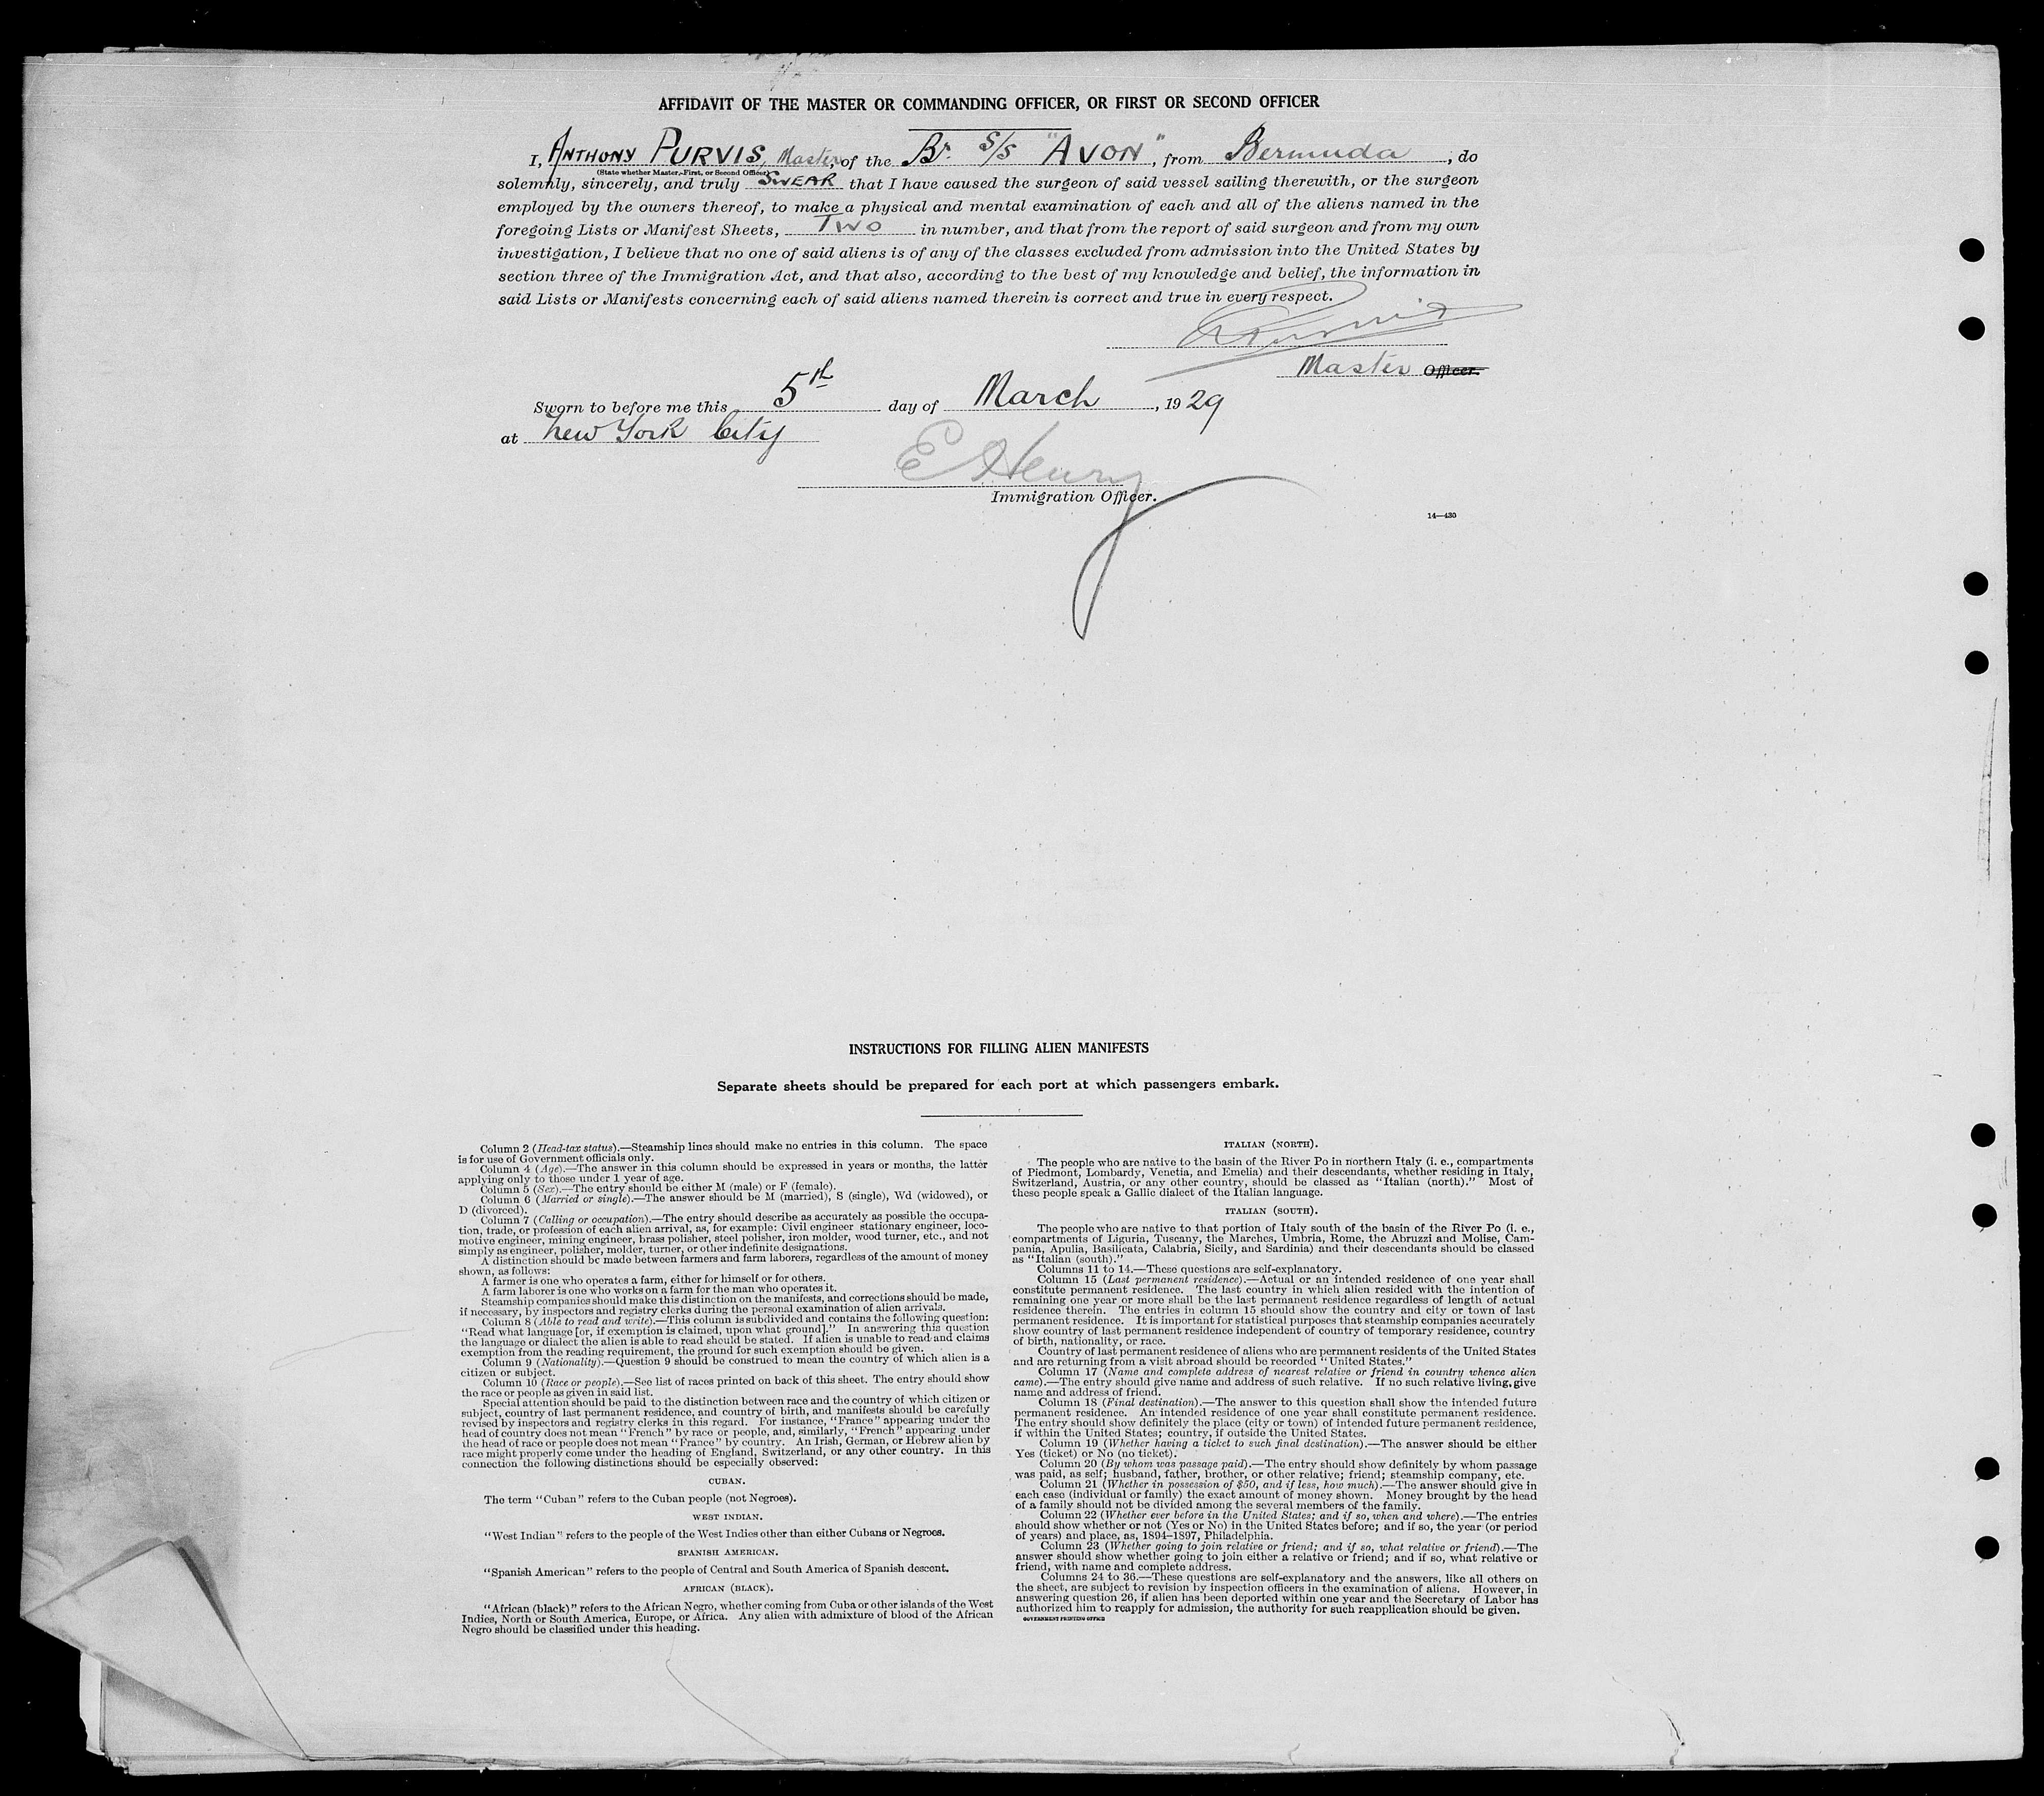 AFFIDAVIT OF THE MASTER OR COMMANDING OFFICER, OR FIRST OR SECOND OFFICER
I, ANTHONY PURVIS, Master, of the Br. S/S "AVON", from Bermuda, do
(State whether Master, First, or Second Officer)
solemnly, sincerely, and truly SWEAR that I have caused the surgeon of said vessel sailing therewith, or the surgeon
employed by the owners thereof, to make a physical and mental examination of each and all of the aliens named in the
foregoing Lists or Manifest Sheets, TWO in number, and that from the report of said surgeon and from my own
investigation, I believe that no one of said aliens is of any of the classes excluded from admission into the United States by
section three of the Immigration Act, and that also, according to the best of my knowledge and belief, the information in
said Lists or Manifests concerning each of said aliens named therein is correct and true in every respect.
A Purvis
Master Officer.
Sworn to before me this 5th day of March, 1929
at New York City
E Henry
Immigration Officer.
14—430
INSTRUCTIONS FOR FILLING ALIEN MANIFESTS
Separate sheets should be prepared for each port at which passengers embark.
Column 2 (Head-tax status).—Steamship lines should make no entries in this column. The space
is for use of Government officials only.
Column 4 (Age).—The answer in this column should be expressed in years or months, the latter
applying only to those under 1 year of age.
Column 5 (Sex).—The entry should be either M (male) or F (female).
Column 6 (Married or single).—The answer should be M (married), S (single), Wd (widowed), or
D (divorced).
Column 7 (Calling or occupation).—The entry should describe as accurately as possible the occupa-
tion, trade, or profession of each alien arrival, as, for example: Civil engineer stationary engineer, loco-
motive engineer, mining engineer, brass polisher, steel polisher, iron molder, wood turner, etc., and not
simply as engineer, polisher, molder, turner, or other indefinite designations.
A distinction should be made between farmers and farm laborers, regardless of the amount of money
shown, as follows:
A farmer is one who operates a farm, either for himself or for others.
A farm laborer is one who works on a farm for the man who operates it.
Steamship companies should make this distinction on the manifests, and corrections should be made,
if necessary, by inspectors and registry clerks during the personal examination of alien arrivals.
Column 8 (Able to read and write).—This column is subdivided and contains the following question:
"Read what language [or, if exemption is claimed, upon what ground]." In answering this question
the language or dialect the alien is able to read should be stated. If alien is unable to read and claims
exemption from the reading requirement, the ground for such exemption should be given.
Column 9 (Nationality).—Question 9 should be construed to mean the country of which alien is a
citizen or subject.
Column 10 (Race or people).—See list of races printed on back of this sheet. The entry should show
the race or people as given in said list.
Special attention should be paid to the distinction between race and the country of which citizen or
subject, country of last permanent residence, and country of birth, and manifests should be carefully
revised by inspectors and registry clerks in this regard. For instance, "France" appearing under the
head of country does not mean "French" by race or people, and, similarly, "French" appearing under
the head of race or people does not mean "France" by country. An Irish, German, or Hebrew alien by
race might properly come under the heading of England, Switzerland, or any other country. In this
connection the following distinctions should be especially observed:
CUBAN.
The term "Cuban" refers to the Cuban people (not Negroes).
WEST INDIAN.
"West Indian" refers to the people of the West Indies other than either Cubans or Negroes.
SPANISH AMERICAN.
"Spanish American" refers to the people of Central and South America of Spanish descent.
AFRICAN (BLACK).
"African (black)" refers to the African Negro, whether coming from Cuba or other islands of the West
Indies, North or South America, Europe, or Africa. Any alien with admixture of blood of the African
Negro should be classified under this heading.
ITALIAN (NORTH).
The people who are native to the basin of the River Po in northern Italy (i. e., compartments
of Piedmont, Lombardy, Venetia, and Emelia) and their descendants, whether residing in Italy,
Switzerland, Austria, or any other country, should be classed as "Italian (north)." Most of
these people speak a Gallic dialect of the Italian language.
ITALIAN (SOUTH).
The people who are native to that portion of Italy south of the basin of the River Po (i. e.,
compartments of Liguria, Tuscany, the Marches, Umbria, Rome, the Abruzzi and Molise, Cam-
pania, Apulia, Basilicata, Calabria, Sicily, and Sardinia) and their descendants should be classed
as "Italian (south)."
Columns 11 to 14.—These questions are self-explanatory.
Column 15 (Last permanent residence).—Actual or an intended residence of one year shall
constitute permanent residence. The last country in which alien resided with the intention of
remaining one year or more shall be the last permanent residence regardless of length of actual
residence therein. The entries in column 15 should show the country and city or town of last
permanent residence. It is important for statistical purposes that steamship companies accurately
show country of last permanent residence independent of country of temporary residence, country
of birth, nationality, or race.
Country of last permanent residence of aliens who are permanent residents of the United States
and are returning from a visit abroad should be recorded "United States."
Column 17 (Name and complete address of nearest relative or friend in country whence alien
came).—The entry should give name and address of such relative. If no such relative living, give
name and address of friend.
Column 18 (Final destination).—The answer to this question shall show the intended future
permanent residence. An intended residence of one year shall constitute permanent residence.
The entry should show definitely the place (city or town) of intended future permanent residence,
if within the United States; country, if outside the United States.
Column 19 (Whether having a ticket to such final destination).—The answer should be either
Yes (ticket) or No (no ticket).
Column 20 (By whom was passage paid).—The entry should show definitely by whom passage
was paid, as self; husband, father, brother, or other relative; friend; steamship company, etc.
Column 21 (Whether in possession of $50, and if less, how much).—The answer should give in
each case (individual or family) the exact amount of money shown. Money brought by the head
of a family should not be divided among the several members of the family.
Column 22 (Whether ever before in the United States; and if so, when and where).—The entries
should show whether or not (Yes or No) in the United States before; and if so, the year (or period
of years) and place, as, 1894–1897, Philadelphia.
Column 23 (Whether going to join relative or friend; and if so, what relative or friend).—The
answer should show whether going to join either a relative or friend; and if so, what relative or
friend, with name and complete address.
Columns 24 to 36.—These questions are self-explanatory and the answers, like all others on
the sheet, are subject to revision by inspection officers in the examination of aliens. However, in
answering question 26, if alien has been deported within one year and the Secretary of Labor has
authorized him to reapply for admission, the authority for such reapplication should be given.
GOVERNMENT PRINTING OFFICE